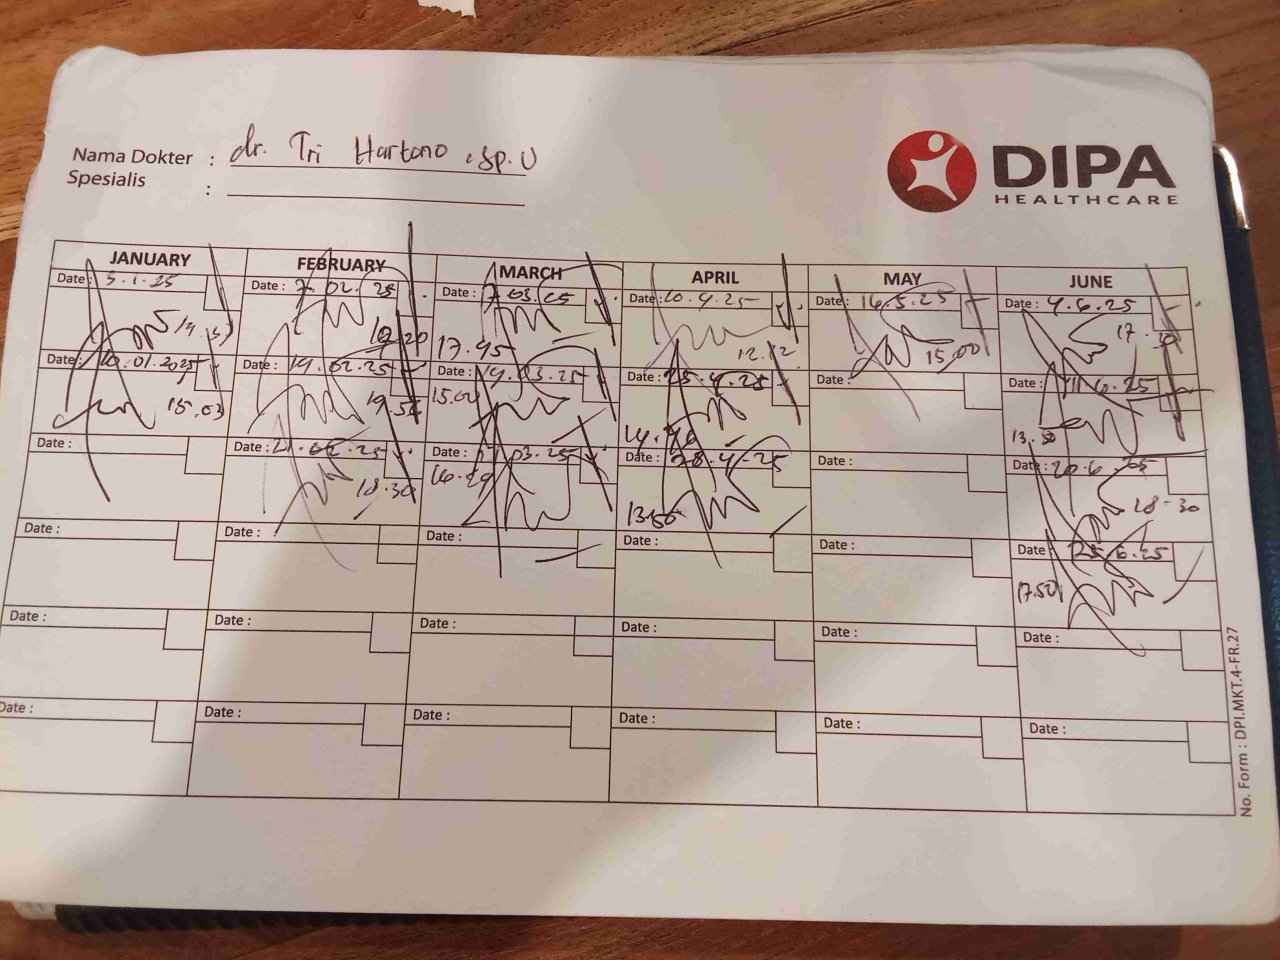 Nama Dokter : dr. Tri Hartono, Sp.U
Spesialis :
DIPA
HEALTHCARE
JANUARY FEBRUARY MARCH APRIL MAY JUNE
Date : 3.1.25 Date : 7.02.25 Date : 7.03.25 Date : 10.4.25 Date : 16.5.25 Date : 4.6.25
19.20 17.45 12.12 15.00 17.30
Date : 10.01.2025 Date : 14.02.25 Date : 14.03.25 Date : 25.4.25 Date : Date : 11.6.25
15.03 15.00
Date : Date : 21.02.25 Date : 03.25 Date : 28.4.25 Date : Date : 20.6.
18.30 18-30
Date : Date : Date : Date : Date : Date : 25.6.25
17.50
Date : Date : Date : Date : Date : Date :
Date : Date : Date : Date : Date : Date :
No. Form : DPI.MKT.4-FR.27